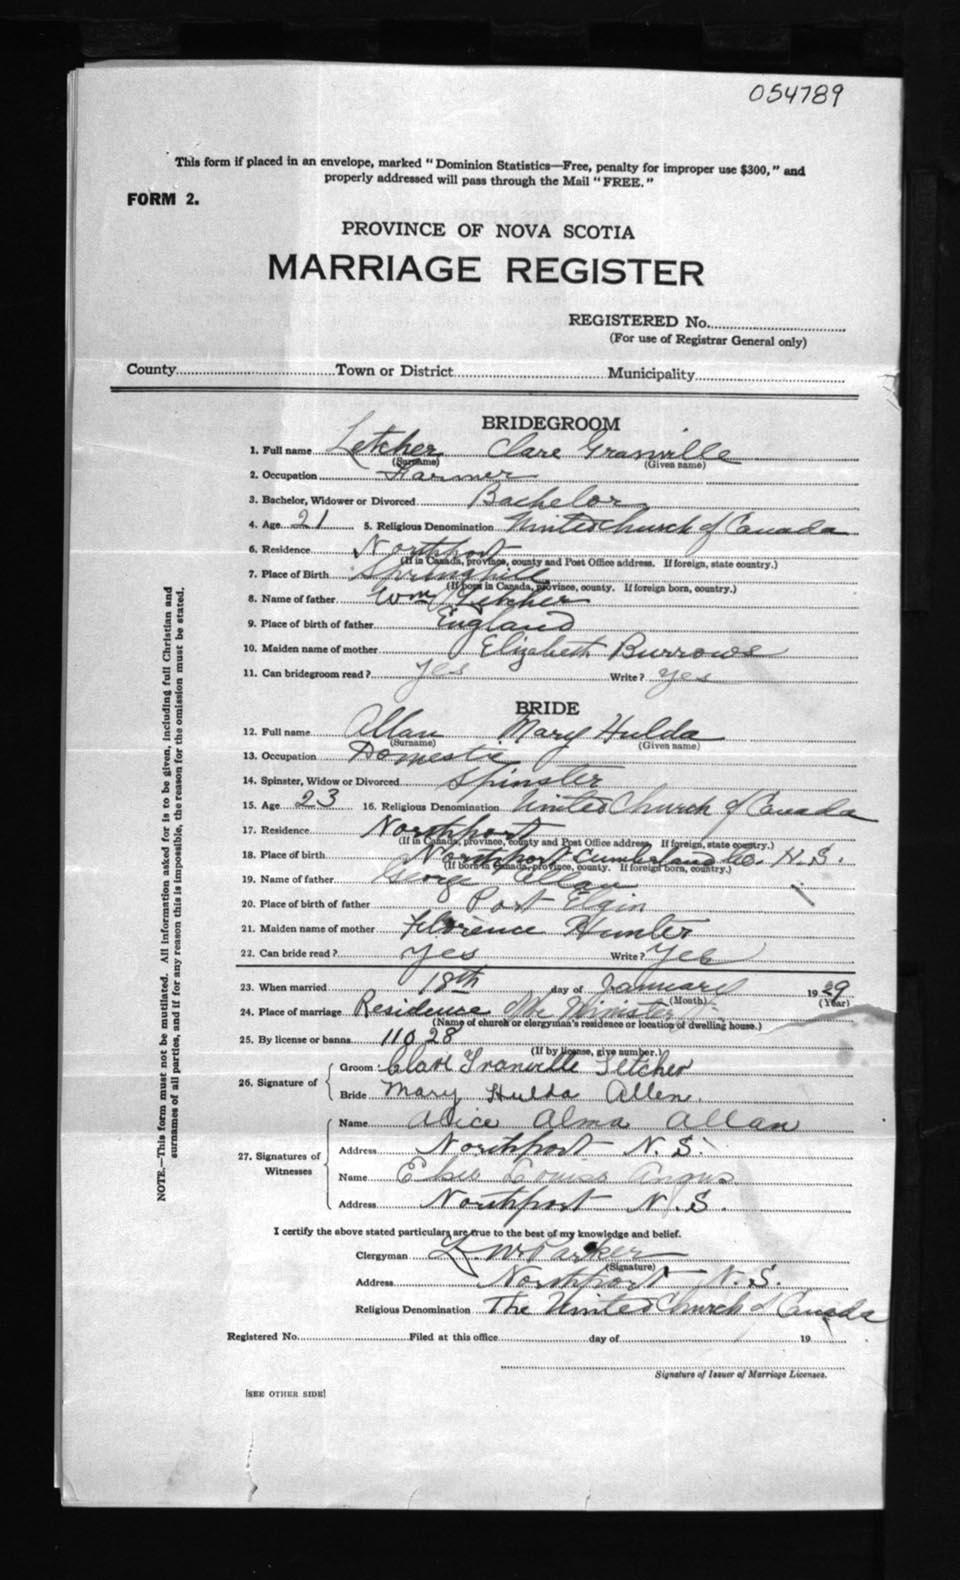 054789
This form if placed in an envelope, marked "Dominion Statistics—Free, penalty for improper use $300," and
properly addressed will pass through the Mail "FREE."
FORM 2.
PROVINCE OF NOVA SCOTIA
MARRIAGE REGISTER
REGISTERED No.
(For use of Registrar General only)
County Town or District Municipality
BRIDEGROOM
1. Full name Letcher Clare Granville
(Surname) (Given name)
2. Occupation Farmer
3. Bachelor, Widower or Divorced Bachelor
4. Age 21 5. Religious Denomination United Church of Canada
6. Residence Northport
(If in Canada, province, county and Post Office address. If foreign, state country.)
7. Place of Birth Springhill
(If born in Canada, province, county. If foreign born, country.)
8. Name of father Wm Letcher
9. Place of birth of father England
10. Maiden name of mother Elizabeth Burrows
11. Can bridegroom read? yes Write? yes
BRIDE
12. Full name Allan Mary Hulda
(Surname) (Given name)
13. Occupation Domestic
14. Spinster, Widow or Divorced Spinster
15. Age 23 16. Religious Denomination United Church of Canada
17. Residence Northport
(If in Canada, province, county and Post Office address. If foreign, state country.)
18. Place of birth Northport Cumberland Co. N.S.
(If born in Canada, province, county. If foreign born, country.)
19. Name of father George Allan
20. Place of birth of father Port Elgin
21. Maiden name of mother Florence Hunter
22. Can bride read? yes Write? Yes
23. When married 18th day of January 1929
(Month) (Year)
24. Place of marriage Residence The Minister
(Name of church or clergyman's residence or location of dwelling house.)
25. By license or banns 11028
(If by license, give number.)
26. Signature of
Groom Clare Granville Letcher
Bride Mary Hulda Allen.
27. Signatures of Witnesses
Name Alice Alma Allan
Address Northport N.S.
Name Elsie Louise Angus
Address Northport N.S.
I certify the above stated particulars are true to the best of my knowledge and belief.
Clergyman L. W. Parker
(Signature)
Address Northport N.S.
Religious Denomination The United Church of Canada
Registered No. Filed at this office day of 19
Signature of Issuer of Marriage Licenses.
[SEE OTHER SIDE]
NOTE.—This form must not be mutilated. All information asked for is to be given, including full Christian and
surnames of all parties, and if for any reason this is impossible, the reason for the omission must be stated.